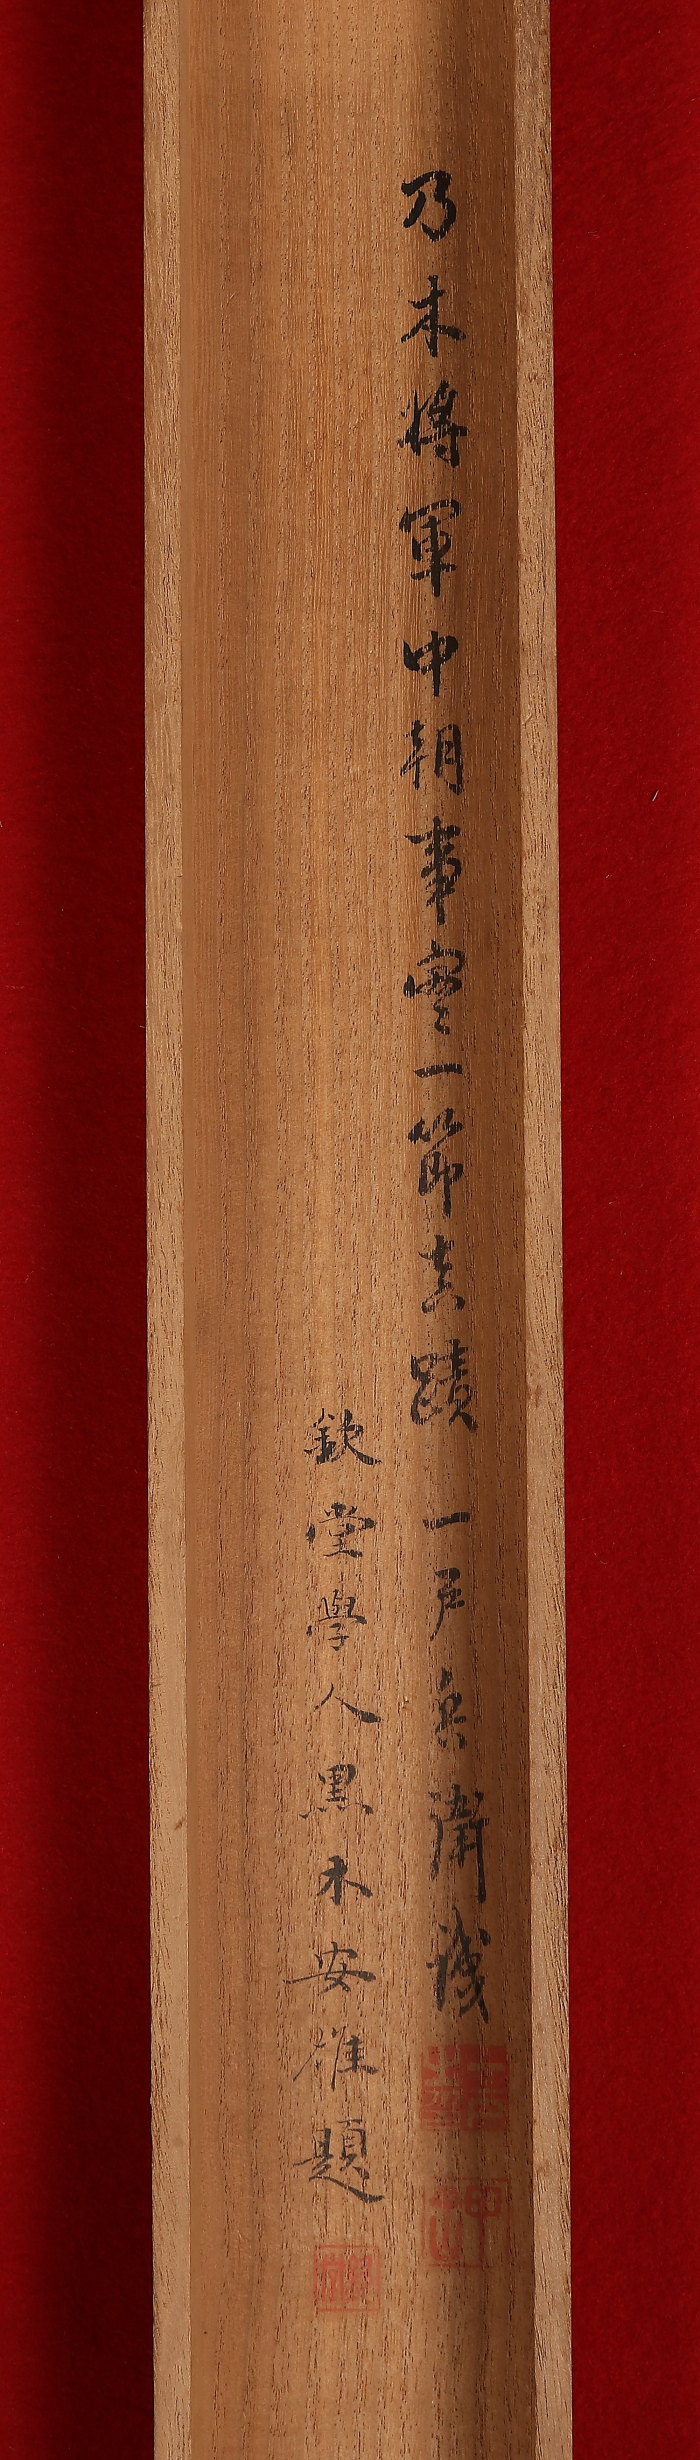 乃木将軍中朝事実一節真蹟 一戸兵衛識
欽堂學人黒木安雄題